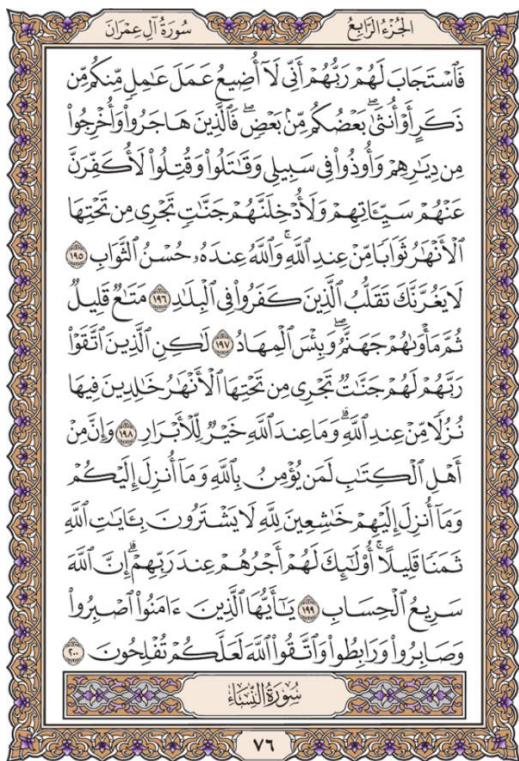 الجُزْءُ الرَّابِعُ
سُورَةُ آلِ عِمْرَانَ
فَٱسْتَجَابَ لَهُمْ رَبُّهُمْ أَنِّى لَآ أُضِيعُ عَمَلَ عَـٰمِلٍ مِّنكُم مِّن
ذَكَرٍ أَوْ أُنثَىٰ ۖ بَعْضُكُم مِّنۢ بَعْضٍ ۖ فَٱلَّذِينَ هَاجَرُوا۟ وَأُخْرِجُوا۟
مِن دِيَـٰرِهِمْ وَأُوذُوا۟ فِى سَبِيلِى وَقَـٰتَلُوا۟ وَقُتِلُوا۟ لَأُكَفِّرَنَّ
عَنْهُمْ سَيِّـَٔاتِهِمْ وَلَأُدْخِلَنَّهُمْ جَنَّـٰتٍ تَجْرِى مِن تَحْتِهَا
ٱلْأَنْهَـٰرُ ثَوَابًا مِّنْ عِندِ ٱللَّهِ ۗ وَٱللَّهُ عِندَهُۥ حُسْنُ ٱلثَّوَابِ ١٩٥
لَا يَغُرَّنَّكَ تَقَلُّبُ ٱلَّذِينَ كَفَرُوا۟ فِى ٱلْبِلَـٰدِ ١٩٦ مَتَـٰعٌ قَلِيلٌ
ثُمَّ مَأْوَىٰهُمْ جَهَنَّمُ ۚ وَبِئْسَ ٱلْمِهَادُ ١٩٧ لَـٰكِنِ ٱلَّذِينَ ٱتَّقَوْا۟
رَبَّهُمْ لَهُمْ جَنَّـٰتٌ تَجْرِى مِن تَحْتِهَا ٱلْأَنْهَـٰرُ خَـٰلِدِينَ فِيهَا
نُزُلًا مِّنْ عِندِ ٱللَّهِ ۗ وَمَا عِندَ ٱللَّهِ خَيْرٌ لِّلْأَبْرَارِ ١٩٨ وَإِنَّ مِنْ
أَهْلِ ٱلْكِتَـٰبِ لَمَن يُؤْمِنُ بِٱللَّهِ وَمَآ أُنزِلَ إِلَيْكُمْ
وَمَآ أُنزِلَ إِلَيْهِمْ خَـٰشِعِينَ لِلَّهِ لَا يَشْتَرُونَ بِـَٔايَـٰتِ ٱللَّهِ
ثَمَنًا قَلِيلًا ۗ أُو۟لَـٰٓئِكَ لَهُمْ أَجْرُهُمْ عِندَ رَبِّهِمْ ۗ إِنَّ ٱللَّهَ
سَرِيعُ ٱلْحِسَابِ ١٩٩ يَـٰٓأَيُّهَا ٱلَّذِينَ ءَامَنُوا۟ ٱصْبِرُوا۟
وَصَابِرُوا۟ وَرَابِطُوا۟ وَٱتَّقُوا۟ ٱللَّهَ لَعَلَّكُمْ تُفْلِحُونَ ٢٠٠
سُورَةُ النِّسَاءِ
٧٦